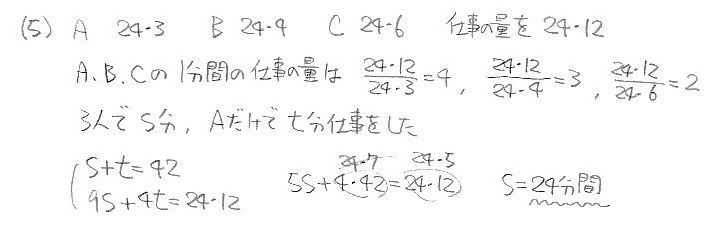 (5) A 24・3 B 24・4 C 24・6 仕事の量を 24・12
A、B、Cの1分間の仕事の量は 24・12/24・3=4, 24・12/24・4=3, 24・12/24・6=2
3人でs分, Aだけでt分仕事をした
s+t=42
9s+4t=24・12
24・7 24・5
5s+4・42=24・12 s=24分間